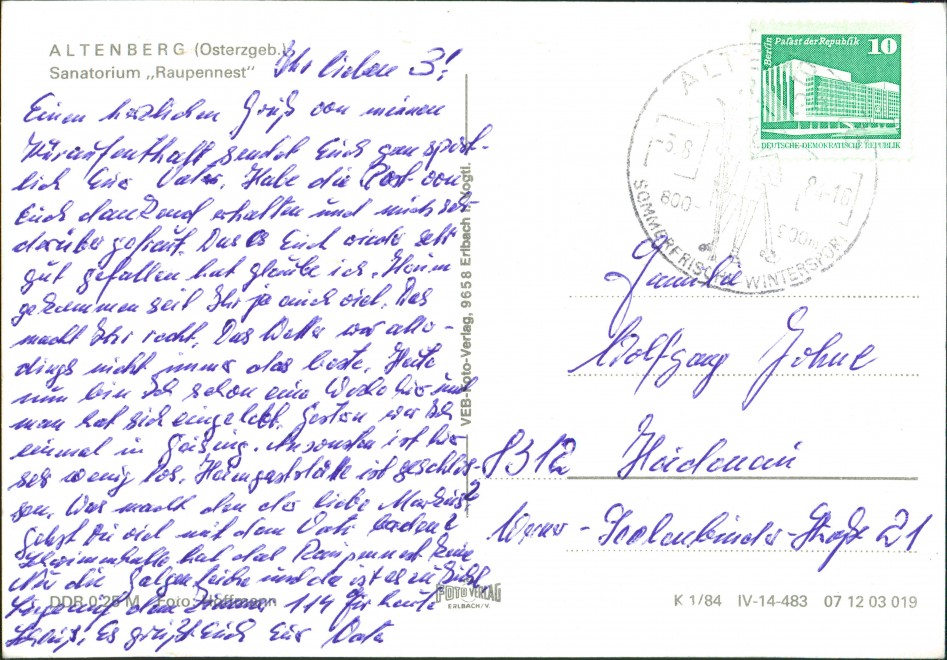 ALTENBERG (Osterzgeb.)
Sanatorium „Raupennest"
Ihr lieben 3!
Einen herzlichen Gruß von meinen
Kuraufenthalt sendet Euch ganz spöt-
lich Eur Vater. Habe die Post von
Euch dankend erhalten und mich sehr
darüber gefreut. Das es Euch wieder sehr
gut gefallen hat glaube ich. Herum
gekommen seit Ihr ja auch viel. Das
macht Ihr recht. Das Wetter war aller-
dings nicht immer das beste. Heute
nun bin Ich schon eine Woche hier und
man hat sich eingelebt. Gestern war Ich
einmal in Geising. Ansonsten ist hier
sehr wenig los. Heimgaststätte ist geschlos-
sen. Was macht den der liebe Markus?
Gehst Du viel mit dem Vati baden?
Schwimmhalle hat das Raupennest keine
Nur die Galgenteiche und da ist es zu kühl
114 Für heute
Schluß. Es grüßt Euch Eur Vater
DDR 0,25 M Foto: Hoffmann
VEB Foto-Verlag, 9658 Erlbach i. Vogtl.
FOTO VERLAG
ERLBACH/V.
Berlin Palast der Republik 10
DEUTSCHE DEMOKRATISCHE REPUBLIK
800-
SOMMERFRISCHE WINTERSPORT
Familie
Wolfgang Johne
8312 Heidenau
Werner-Seelenbinder-Straße 21
K 1/84 IV-14-483 07 12 03 019